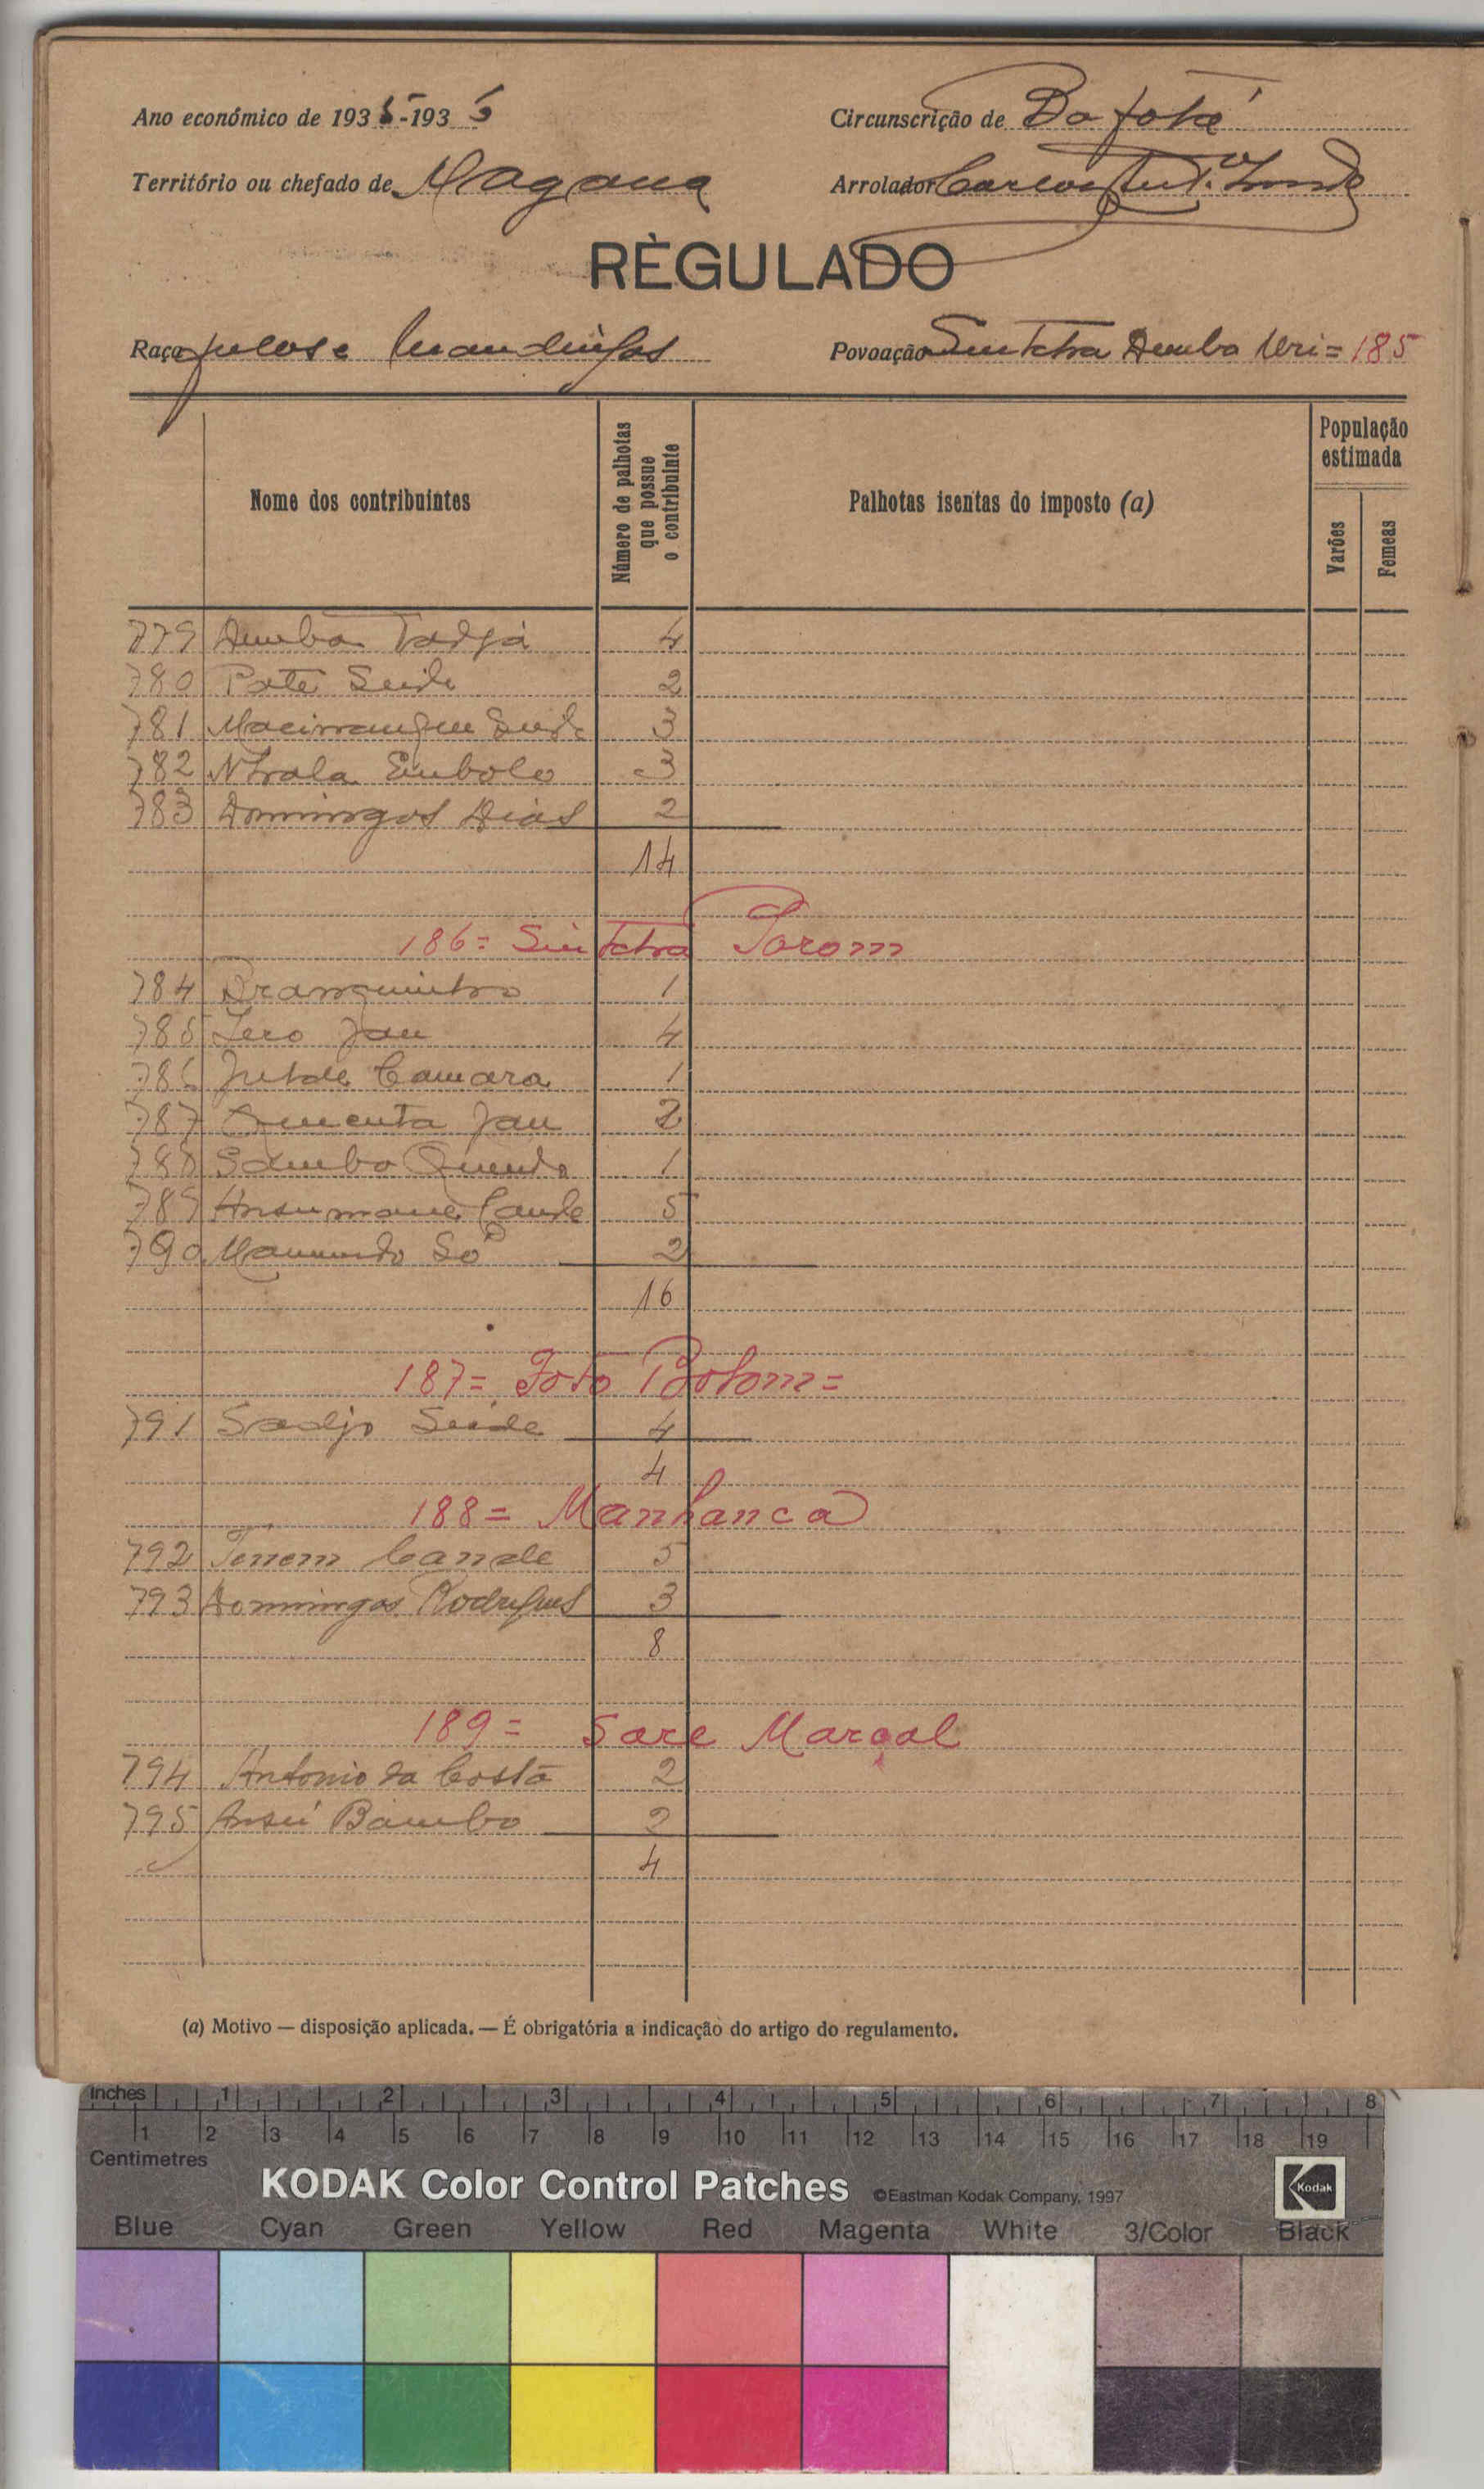 Ano económico de 1935-1935
Circunscrição de Bafatá
Território ou chefado de
Arrolador Carlos
RÈGULADO
Raça fulas e mandingas
Povoação Sintchra Demba Uri = 185
Nome dos contribuintes
Número de palhotas que possue o contribuinte
Palhotas isentas do imposto (a)
População estimada
Varões
Femeas
779 Demba 4
780 Pate Seide 2
781 Seide 3
782 Embalo 3
783 Domingos Dias 2
14
186 = Sintchra Porom
784 1
785 Jau 4
786 Camara 1
787 Jau 2
788 Samba 1
789 Ansumane Cande 5
790 Mamundo Só 2
16
187 = Foto Bolom =
791 Sadjo Seide 4
4
188 = Manhanca
792 Tenem Cande 5
793 Domingos Rodrigues 3
8
189 = Sare Marçal
794 Antonio da Costa 2
795 Ansú Bambo 2
4
(a) Motivo — disposição aplicada. — É obrigatória a indicação do artigo do regulamento.
Inches 1 2 3 4 5 6 7 8
1 2 3 4 5 6 7 8 9 10 11 12 13 14 15 16 17 18 19
Centimetres
KODAK Color Control Patches ©Eastman Kodak Company, 1997 Kodak
Blue Cyan Green Yellow Red Magenta White 3/Color Black